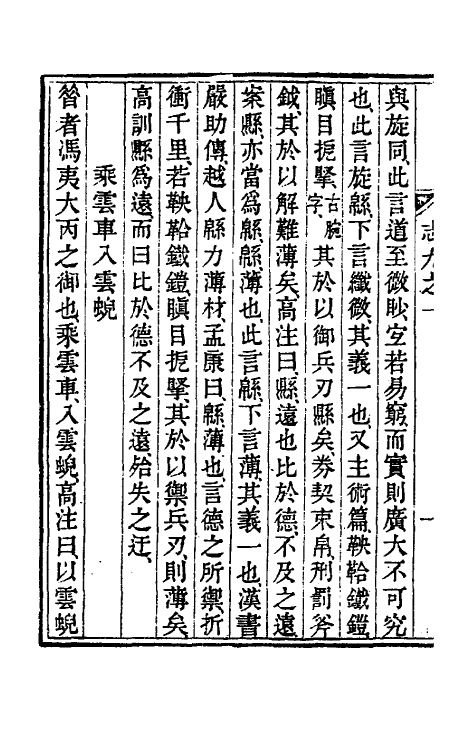 志九之一
一
與旋同、此言道至微眇、宐若易窮、而實則廣大不可究
也、此言旋緜、下言纖微、其義一也、又主術篇、鞅鞈鐵鎧、
瞋目扼掔、古腕字、其於以御兵刃縣矣、券契束帛、刑罰斧
鉞、其於以解難薄矣、高注曰、縣、遠也、比於德、不及之遠、
案縣、亦當爲緜、緜薄也、此言緜、下言薄、其義一也、漢書
嚴助傳、越人緜力薄材、孟康曰、緜、薄也、言德之所禦、折
衝千里、若鞅鞈鐵鎧、瞋目扼掔、其於以禦兵刃、則薄矣、
高訓縣爲遠、而曰比於德不及之遠、殆失之迂、
乘雲車入雲蜺
昝者馮夷大丙之御也、乘雲車、入雲蜺、高注曰、以雲蜺